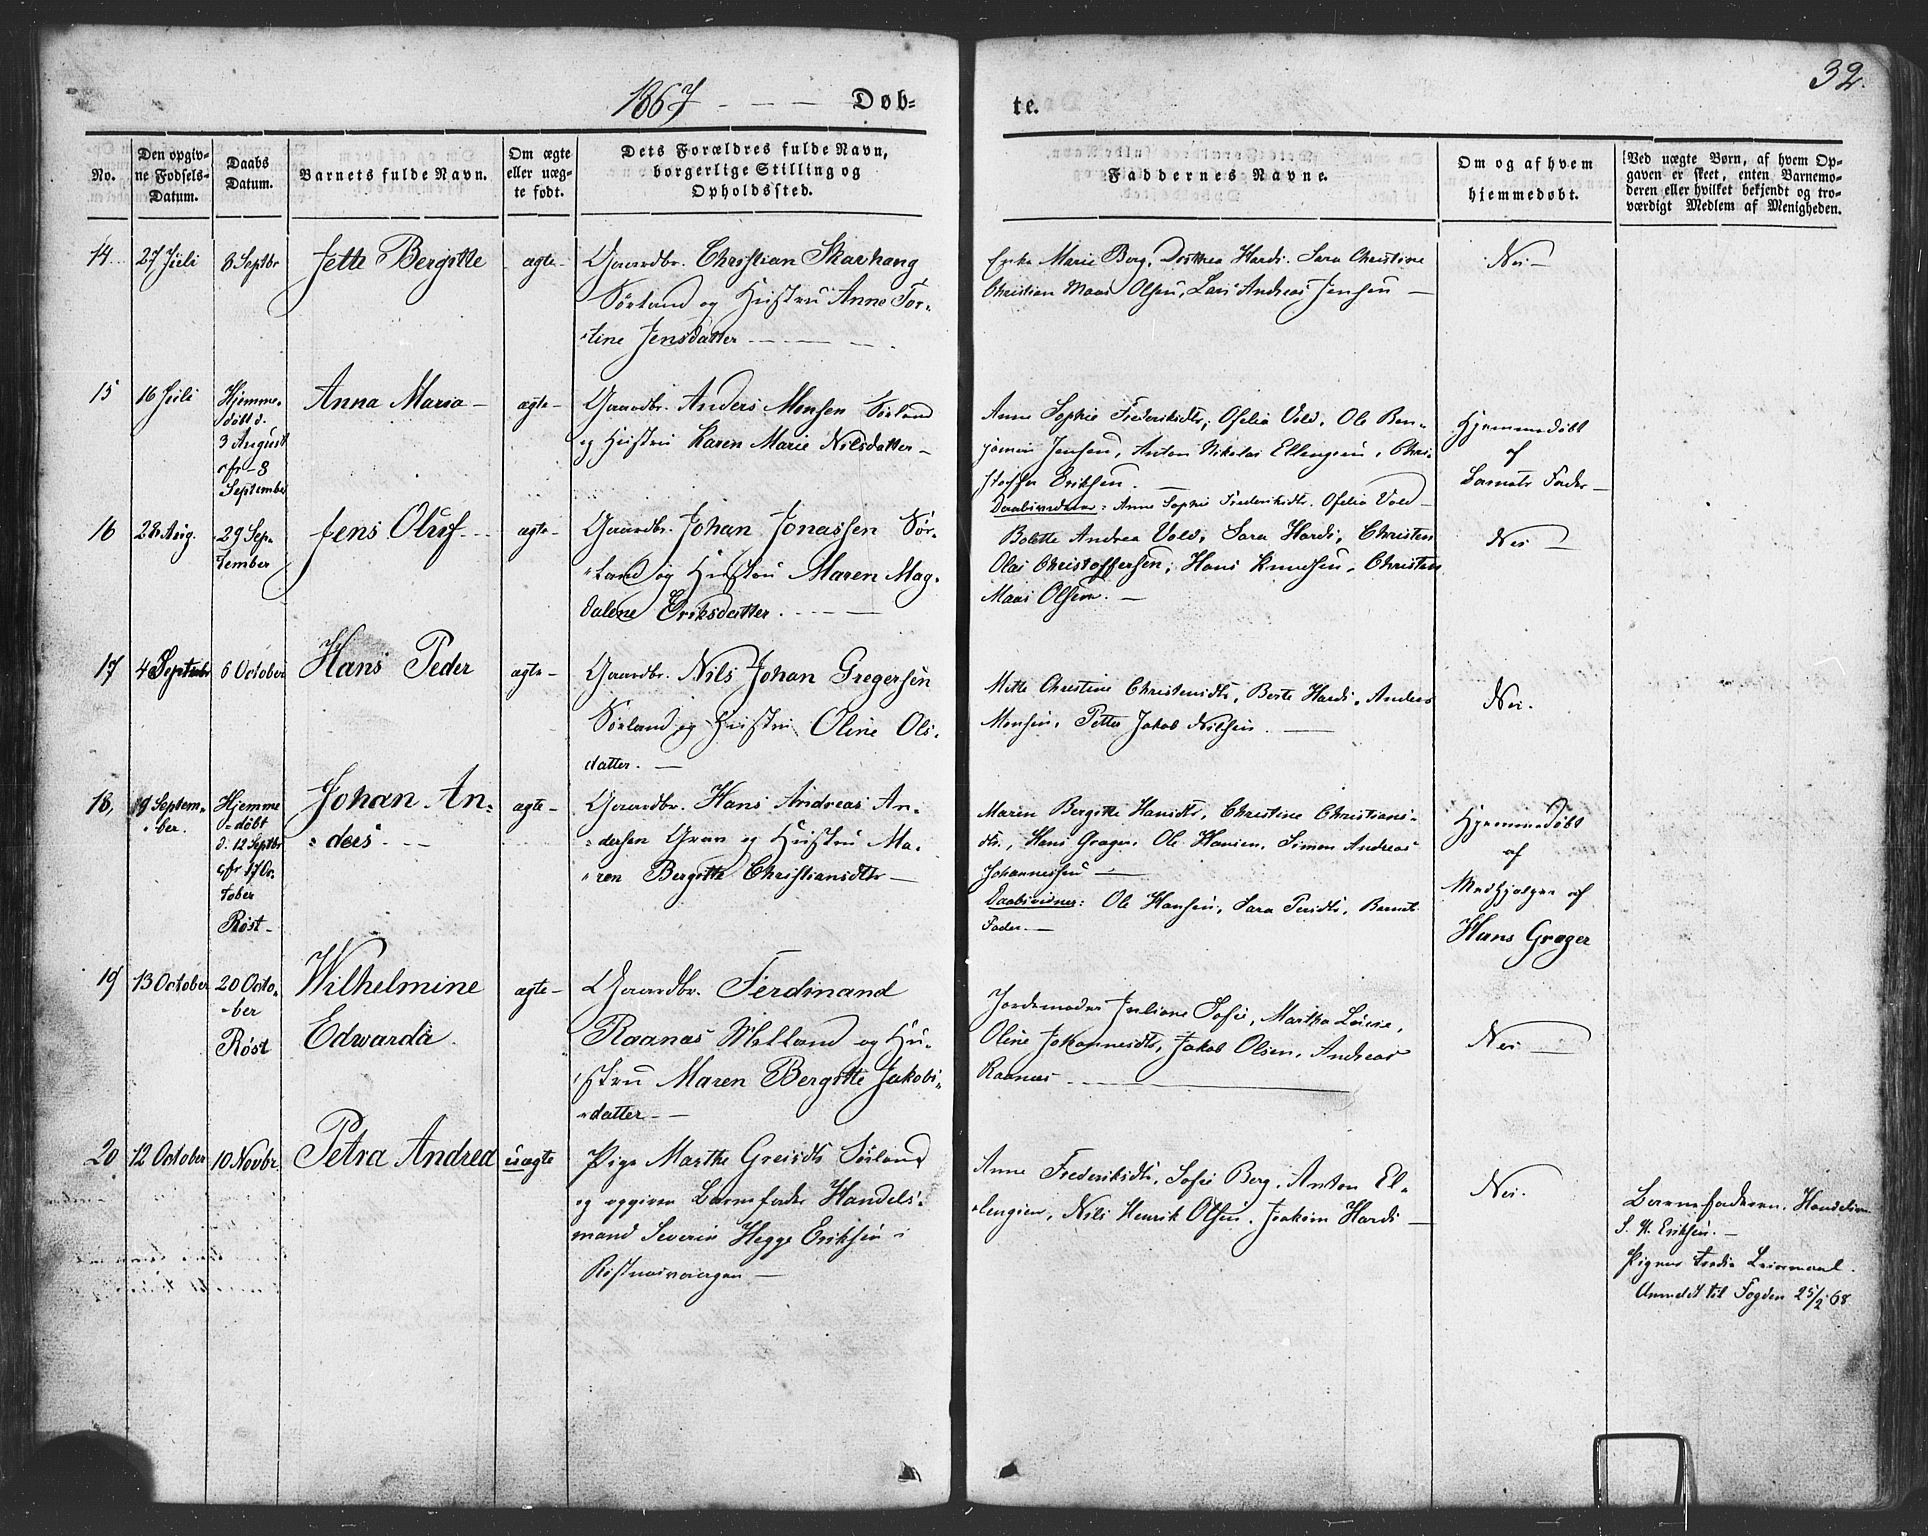 1867 - - - Døb-
te.
32.
No.
Den opgiv-
ne Fødsels-
Datum.
Daabs
Datum.
Barnets fulde Navn.
Om ægte
eller uæg-
te født.
Dets Forældres fulde Navn,
borgerlige Stilling og
Opholdssted.
Faddernes Navne.
Om og af hvem
hjemmedøbt.
Ved uægte Børn, af hvem Op-
gaven er skeet, enten Barnemo-
deren eller hvilket bekjendt og tro-
værdigt Medlem af Menigheden.
14
27 Juli
8 Septbr
Jette Bergitte
ægte-
Gaardbr. Christian Skarhaug
Sørland og Hustru Anne Tor-
tine Jensdatter
Marie Berg, Dorthea Hardi. Sara Christine
Christian Maas Olsen, Lars Andreas Jensen
Nei-
15
16 Juli
Hjemme-
døbt d.
3 August
cfr - 8
September
Anna Maria-
ægte-
Gaardbr. Anders Monsen Sørland
og Hustru Karen Marie Nilsdatter-
Anne Sophie Frederiksdtr, Ofelia Vold, Ole Ben-
jamin Jensen, Anton Nikolai Ellingsen, Chri-
stoffer Eriksen.
Daabsvidner: Anne Sophie Frederiksdtr. Ofelia Vold
Hjemmedøbt
af
Barnets Fader-
16
28 Aug.
29 Sep-
tember
Jens Oluf
ægte-
Gaardbr. Johan Jonassen Sør-
land og Hustru Maren Mag-
dalene Eriksdatter.
Bolette Andrea Vold, Sara Hardi, Christen
Olai Christoffersen, Hans Knudsen, Christen
Maas Olsen. -
Nei-
17
4 Septembr
6 October
Hans Peder
ægte-
Gaardbr. Nils Johan Gregersen
Sørland og Hustru Oline Ols-
datter. -
Mette Christine Christensdtr, Berte Hardi, Anders
Monsen, Petter Jakob Nilsen.
Nei.
18,
19 Septem-
ber.
Hjemme
døbt
d. 12 Septbr
cfr 17 Oc-
tober
Røst-
Johan An-
ders
ægte-
Gaardbr. Hans Andreas An-
dersen Grav og Hustru Ma-
ren Bergitte Christiansdtr-
Maren Bergitte Hansdtr, Christine Christians-
dtr., Hans Grøger. Ole Hansen, Simon Andreas
Johannessen
Daabsvidner: Ole Hansen, Sara Persdtr, Barnets
Fader-
Hjemmedøbt
af
Medhjelper af
Hans Grøger
19
13 October
20 Octo-
ber
Røst
Wilhelmine
Edwarda.
ægte-
Gaardbr. Ferdinand
Raanas Melland og Hu-
stru Maren Bergitte Jakobs-
datter-
Jordemoder Juliane Sofie, Martha Lovise,
Oline Johannesdtr, Jakob Olsen, Andreas
Raanas
Nei-
20
12 October
10 Novbr.
Petra Andrea
uægte
Pige Marthe Greisdtr Sørland
og opgiven Barnefader Handels-
mand Severin Hegge Eriksen i
Røstnesvaagen-
Anne Frederiksdtr, Sofie Berg, Anton El-
lingsen, Nils Henrik Olsen. Joakim Hardi-
Nei.
Barnefaderen, Handelsm.
S. H. Eriksen.-
Pigens tredie Leiermaal.
Anmeldt til Fogden 25/2 68